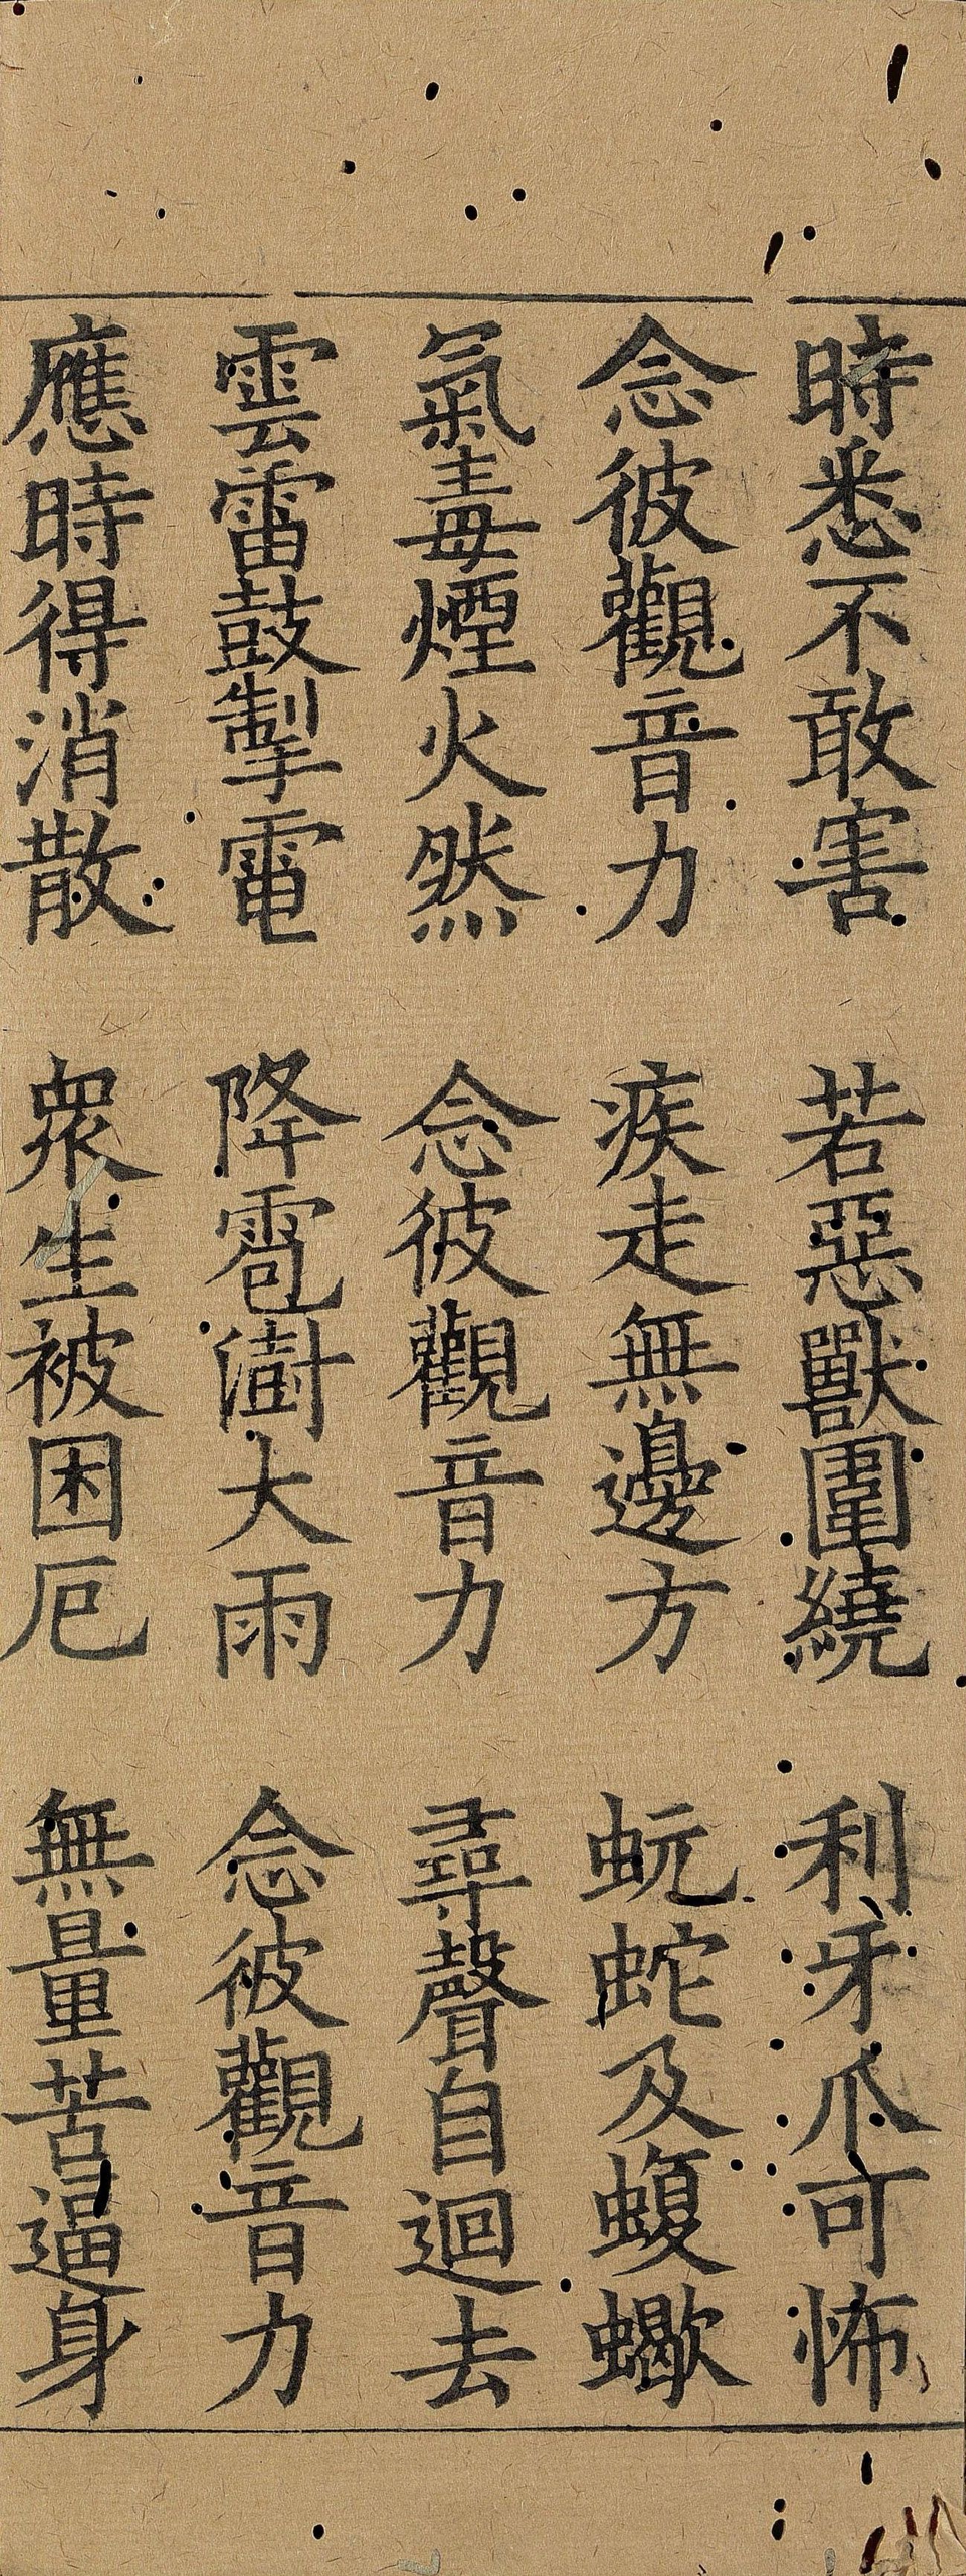 時悉不敢害　若惡獸圍繞　利牙爪可怖
念彼觀音力　疾走無邊方　蚖蛇及蝮蠍
氣毒煙火然　念彼觀音力　尋聲自迴去
雲雷鼓掣電　降雹澍大雨　念彼觀音力
應時得消散　衆生被困厄　無量苦逼身